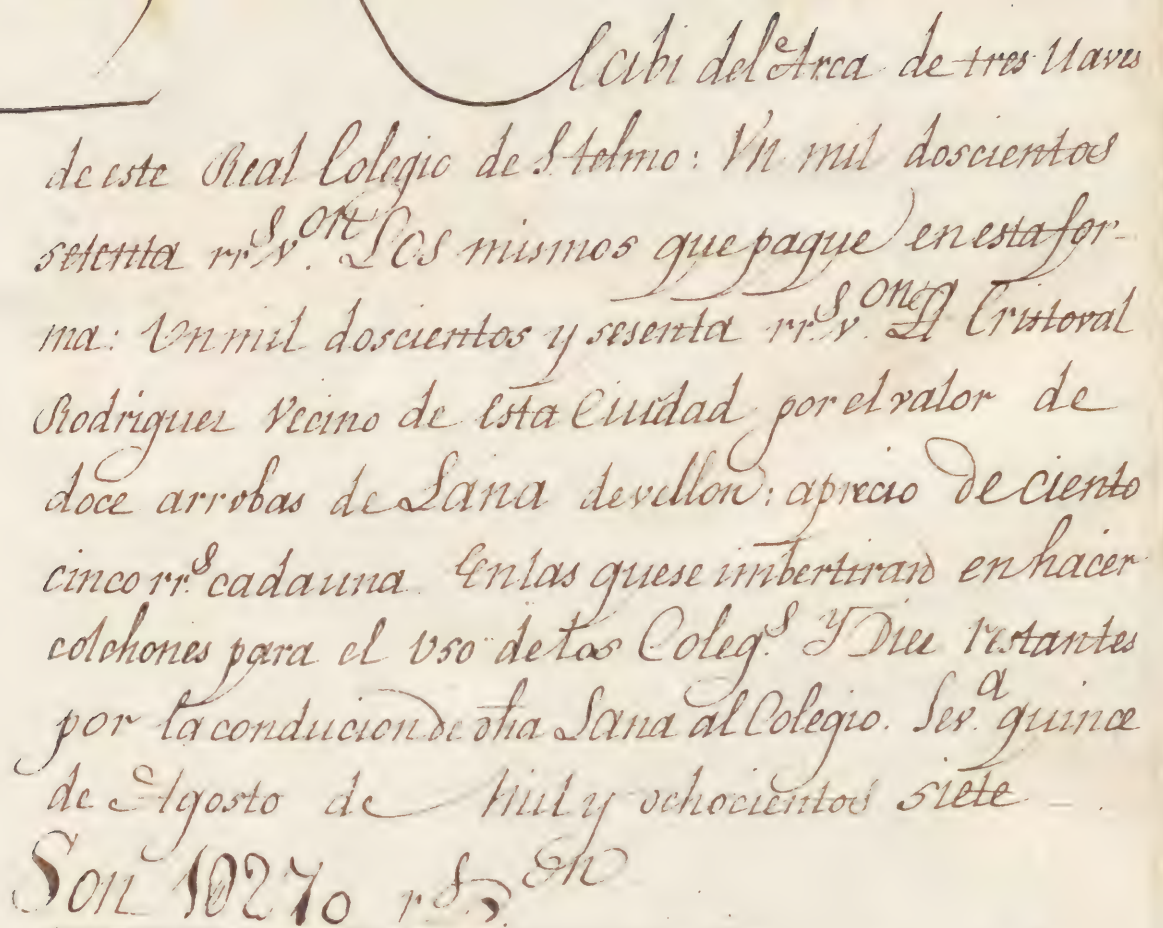 Recibi del Arca de tres llaves
de este Real Colegio de S. telmo: Vn mil doscientos
setenta rr.s v.on Los mismos que pague en esta for-
ma: Un mil doscientos y sesenta rr.s v.on á D.n Cristoval
Rodriguez Vecino de Esta Ciudad por el valor de
doce arrobas de Lana de vellon: aprecio de ciento
cinco rr.s cada una. En las que se imbertiran en hacer
colchones para el Vso de los Coleg.s Y Diez restantes
por la conducion de dha Lana al Colegio. Sev.a quince
de Agosto de Mil y ochocientos siete
Son 1U270 r.s v.on